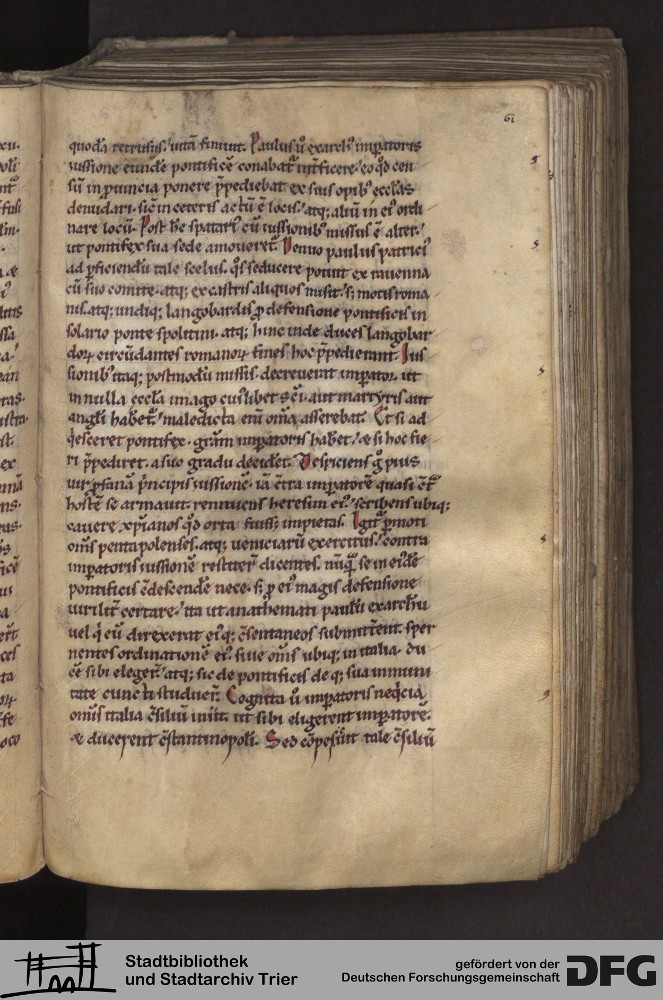 61
quoda retrusus. uitā finiuit. Paulus ū exarch' imꝑatoris
iussione eundē pontificē conabat᷑ int̄ficere. eo qđ cen
sū in ꝓuincia ponere p̄pediebat. ex suis opib; ecclās
denudari. sic in ceteris actū ē locis. atq; aliū in ei' ordi
nare locū. Post hc̄ spatari' cū iussionib; missus ē alter.
ut pontifex sua sede amoueret᷑. Denuo paulus patrici'
ad ꝑficiendū tale scelus. qͦs seducere potuit ex rauenna
cū suo comite. atq; ex castris aliquos misit. s; motis roma
nis. atq; undiq; langobardis ꝓ defensione pontificis in
solario ponte spolitini. atq; hinc inde duces langobar
doꝝ circūdantes romanoꝝ fines hoc p̄pedierunt. Ius
sionib; itaq; postmodū missis decreuerat imꝑator. ut
in nulla eccl̄a imago cuiuslibet sc̄i. aut martyris aut
angl̄i haberet᷑. maledicta eni om̄a asserebat. Et si ad
qͥesceret pontifex. gr̄am imꝑatoris habet᷑. & si hoc fie
ri p̄pediret. a suo gradu decidet᷑. Despiciens g̊ pius
uir ꝓfanā p̄ncipis iussionē. iā cͣtra imꝑatorē quasi cͣtͣ
hostē se armauit. renuens heresim ei'. scribens ubiq;
cauere xp̄ianos qđ orta fuiss; impietas. Igit᷑ ꝑmoti
om̄s pentapolenses. atq; ueniciarū exercitus. contra
imꝑatoris iussionē restiter̄ dicentes. nūqͣ se in eidē
pontificis c̄descende nece. s; ꝓ ei' magis defensione
uirilit̄ certare. ita ut anathemati paulū exarchū
uel qͥ eū direxerat ei'q; c̄sentaneos submitterent. sper
nentes ordinationē ei'. siue om̄s ubiq; in italia du
cē sibi eleger̄. atq; sic de pontificis de q; sua inmuni
tate cuncti studuer̄. Cognita ū imꝑatoris neqͥcia
omis italia c̄siliū iniit. ut sibi eligerent imꝑatorē.
& ducerent c̄stantinopoli. Sed cōpesuit tale c̄siliū
Stadtbibliothek
und Stadtarchiv Trier
gefördert von der
Deutschen Forschungsgemeinschaft
DFG